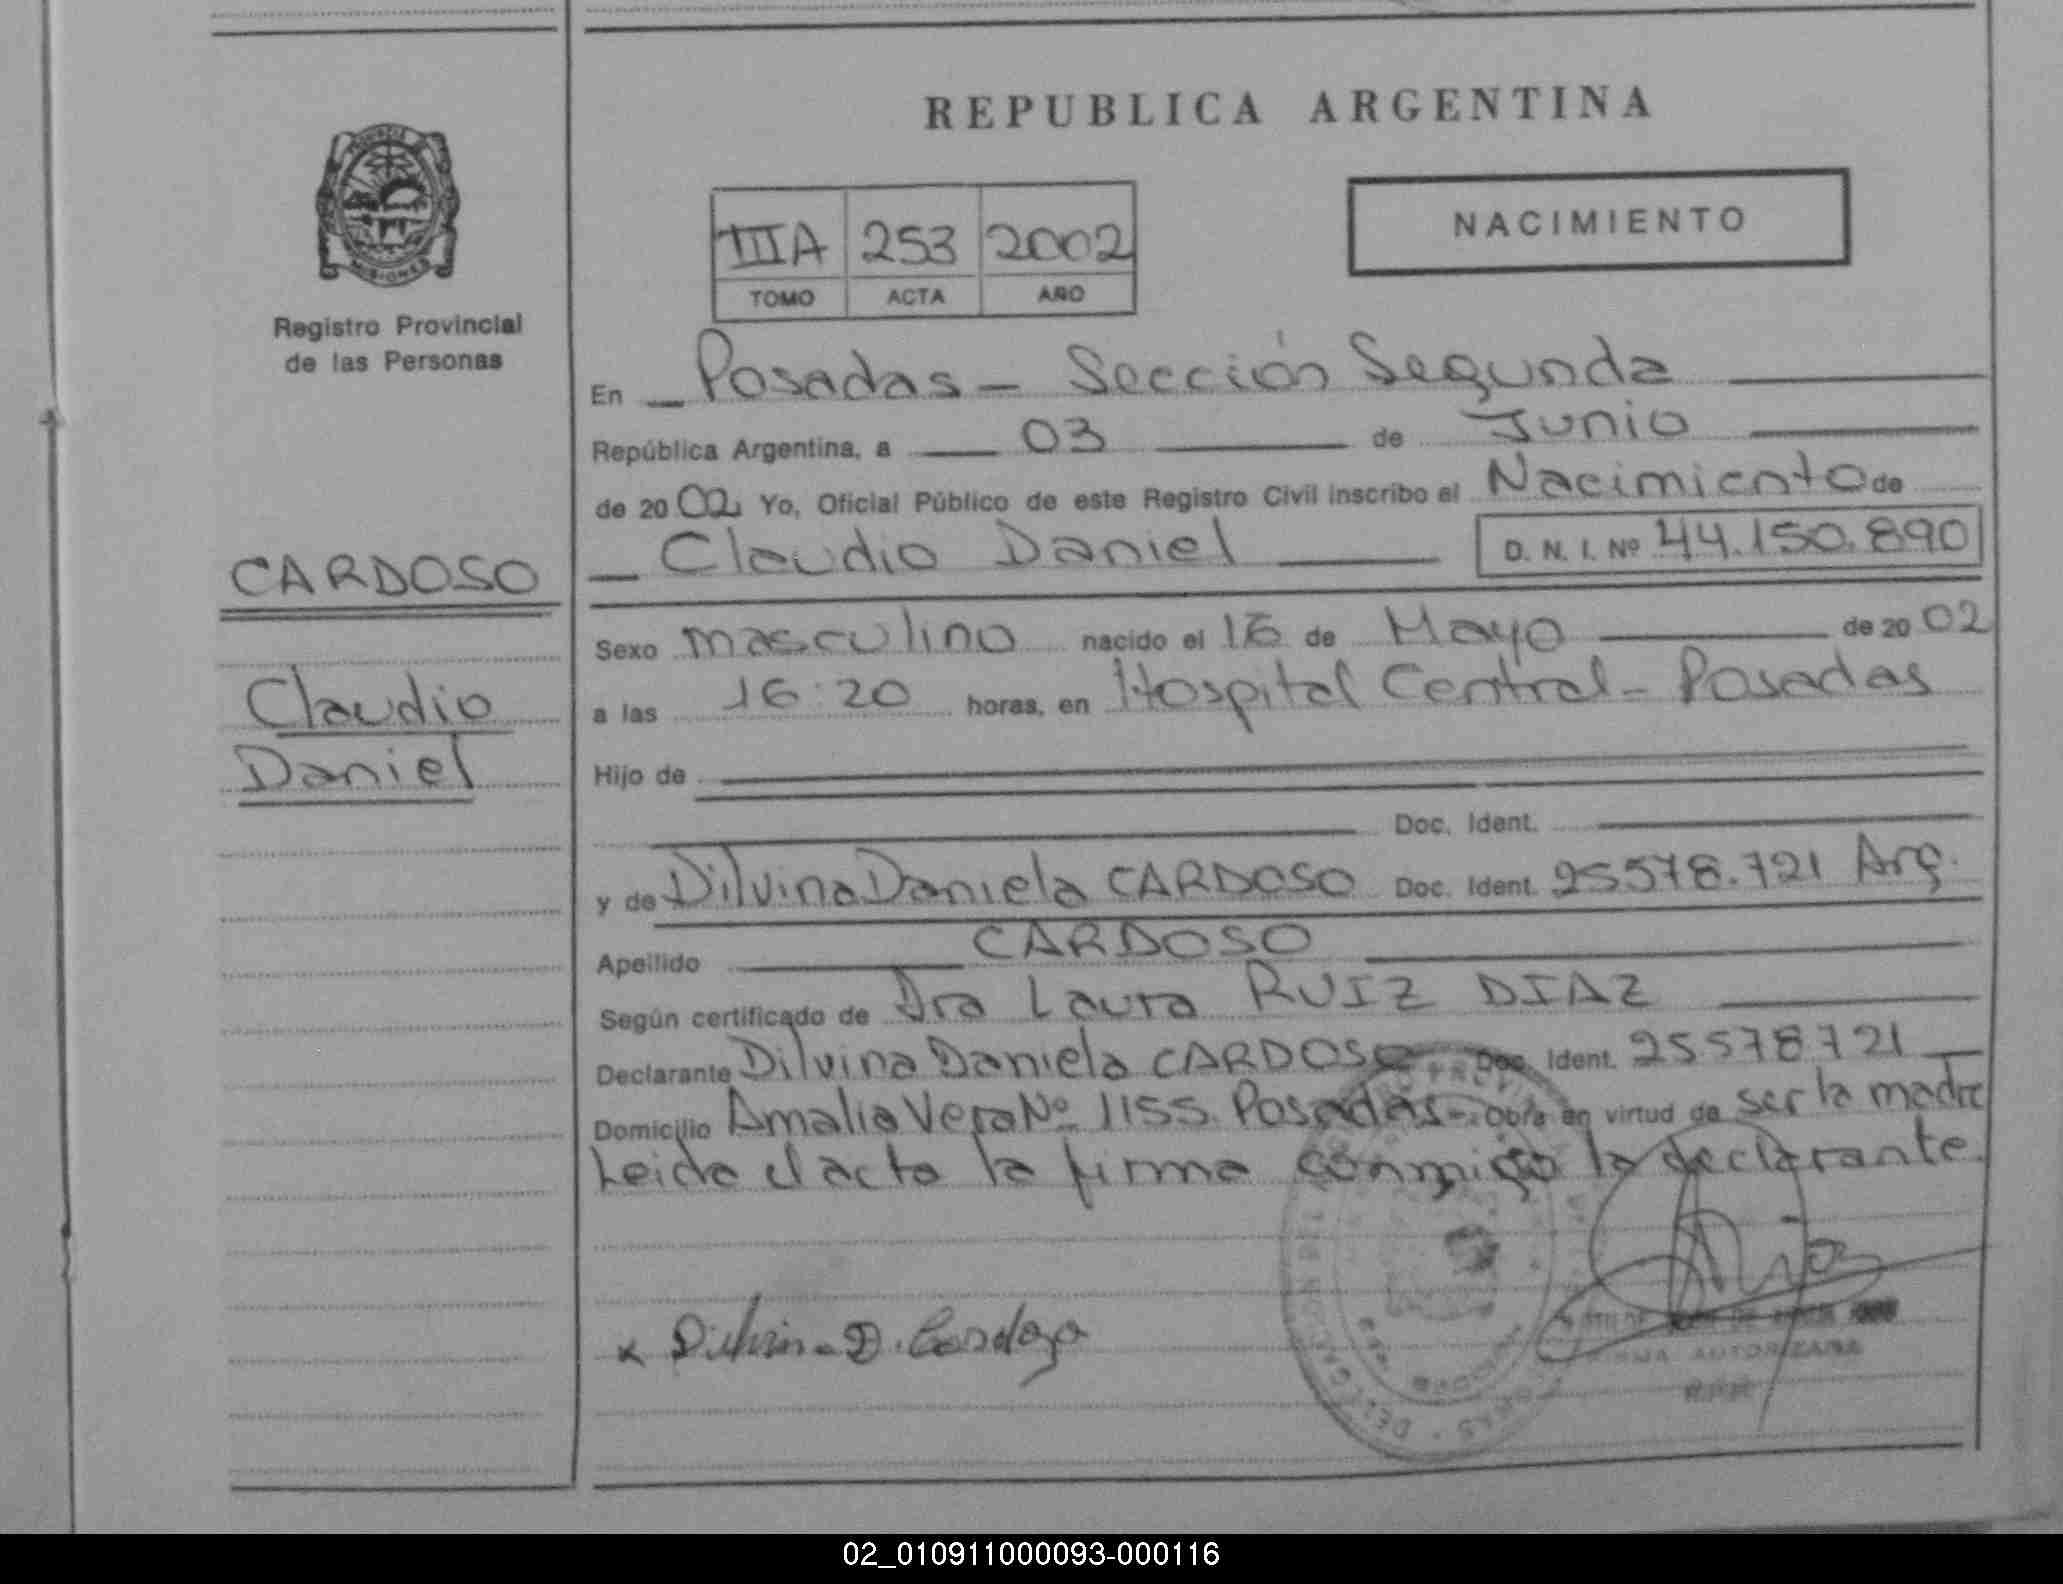 REPUBLICA ARGENTINA
NACIMIENTO
IIIA 253 2002
TOMO ACTA AÑO
MISIONES
Registro Provincial
de las Personas
En Posadas - Sección Segunda
República Argentina, a 03 de Junio
de 2002 Yo, Oficial Público de este Registro Civil inscribo el Nacimiento de
Claudio Daniel D. N. I. Nº 44.150.890
CARDOSO
Claudio
Daniel
Sexo masculino nacido el 16 de Mayo de 2002
a las 16:20 horas, en Hospital Central - Posadas
Hijo de
Doc. Ident.
y de Dilvina Daniela CARDOSO Doc. Ident. 25578.721 Arg.
Apellido CARDOSO
Según certificado de Dra Laura RUIZ DIAZ
Declarante Dilvina Daniela CARDOSO Doc. Ident. 25578721
Domicilio Amalia Vera Nº 1155. Posadas - Obra en virtud de ser la madre
Leida el acta la firma conmigo la declarante.
x Dilvina D. Cardozo
FIRMA AUTORIZADA
02_010911000093-000116